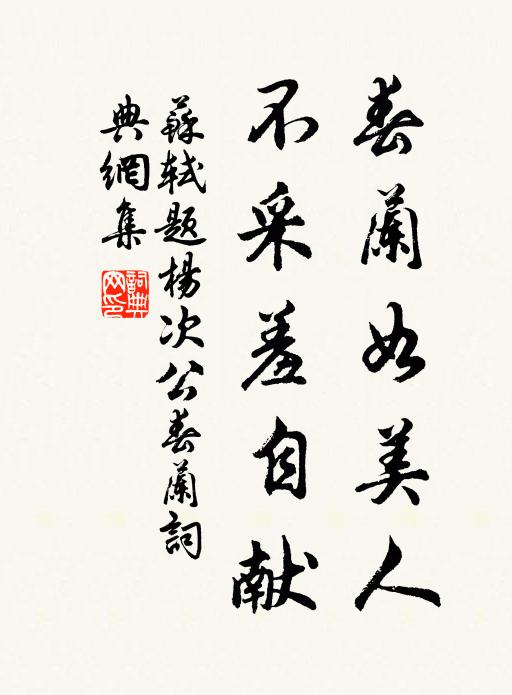 春蘭如美人
不采羞自献
蘇軾题楊次公春蘭詞
典網集
詞典網印